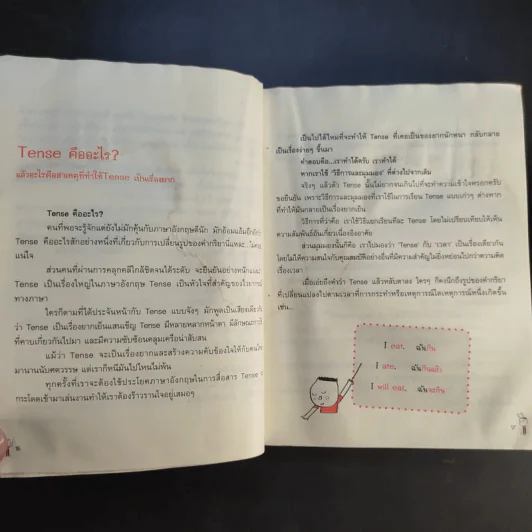 Tense คืออะไร?
แล้วอะไรคือสาเหตุที่ทำให้ Tense เป็นเรื่องยาก
Tense คืออะไร?
คนที่พอจะรู้จักแต่ยังไม่มักคุ้นกับภาษาอังกฤษดีนัก มักอ้อมแอ้มอึกอัก
Tense คืออะไรสักอย่างหนึ่งที่เกี่ยวกับการเปลี่ยนรูปของคำกริยานี่แหละ...ไม่ค่อย
แน่ใจ
ส่วนคนที่ผ่านการคลุกคลีใกล้ชิดจนได้ระดับ จะยืนยันอย่างหนักแน่น
Tense เป็นเรื่องใหญ่ในภาษาอังกฤษ Tense เป็นหัวใจที่สำคัญของไวยากรณ์
ทางภาษา
ใครก็ตามที่ได้ประจันหน้ากับ Tense แบบจังๆ มักพูดเป็นเสียงเดียวกัน
ว่า Tense เป็นเรื่องยากเย็นแสนเข็ญ Tense มีหลายหลากหน้าตา มีลักษณะการใช้
ที่คาบเกี่ยวกันไปมา และมีความซับซ้อนคลุมเครือน่าสับสน
แม้ว่า Tense จะเป็นเรื่องยากและสร้างความคับข้องใจให้กับคนไทย
มานานนับศตวรรษ แต่เราก็หนีมันไปไหนไม่พ้น
ทุกครั้งที่เราจะต้องใช้ประโยคภาษาอังกฤษในการสื่อสาร Tense
กระโดดเข้ามาเล่นงานทำให้เราต้องร้าวรานใจอยู่เสมอๆ
16
เป็นไปได้ไหมที่จะทำให้ Tense ที่เคยเป็นของยากนักหนา กลับกลาย
เป็นเรื่องง่ายๆ ขึ้นมา
คำตอบคือ...เราทำได้ครับ เราทำได้
หากเราใช้ 'วิธีการและมุมมอง' ที่ต่างไปจากเดิม
จริงๆ แล้วตัว Tense นั้นไม่ยากจนเกินไปที่จะทำความเข้าใจหรอกครับ
ขอยืนยัน เพราะวิธีการและมุมมองที่เราใช้ในการเรียน Tense แบบเก่าๆ ต่างหาก
ที่ทำให้มันกลายเป็นเรื่องยากเย็น
วิธีการที่ว่าคือ เราใช้วิธีแยกเรียนทีละ Tense โดยไม่เปรียบเทียบให้เห็น
ความสัมพันธ์อันเกี่ยวเนื่องอิงอาศัย
ส่วนมุมมองนั้นก็คือ เราไปมองว่า 'Tense' กับ 'เวลา' เป็นเรื่องเดียวกัน
โดยไม่ให้ความสนใจกับคุณสมบัติอย่างอื่นที่มีความสำคัญไม่ยิ่งหย่อนไปกว่าความคิด
เรื่องเวลา
เมื่อเอ่ยถึงคำว่า Tense แล้วหลับตาลง ใครๆ ก็คงนึกถึงรูปของคำกริยา
ที่เปลี่ยนแปลงไปตามเวลาที่การกระทำหรือเหตุการณ์ใดเหตุการณ์หนึ่งเกิดขึ้น
เช่น...
I eat. ฉันกิน
I ate. ฉันกินแล้ว
I will eat. ฉันจะกิน
17